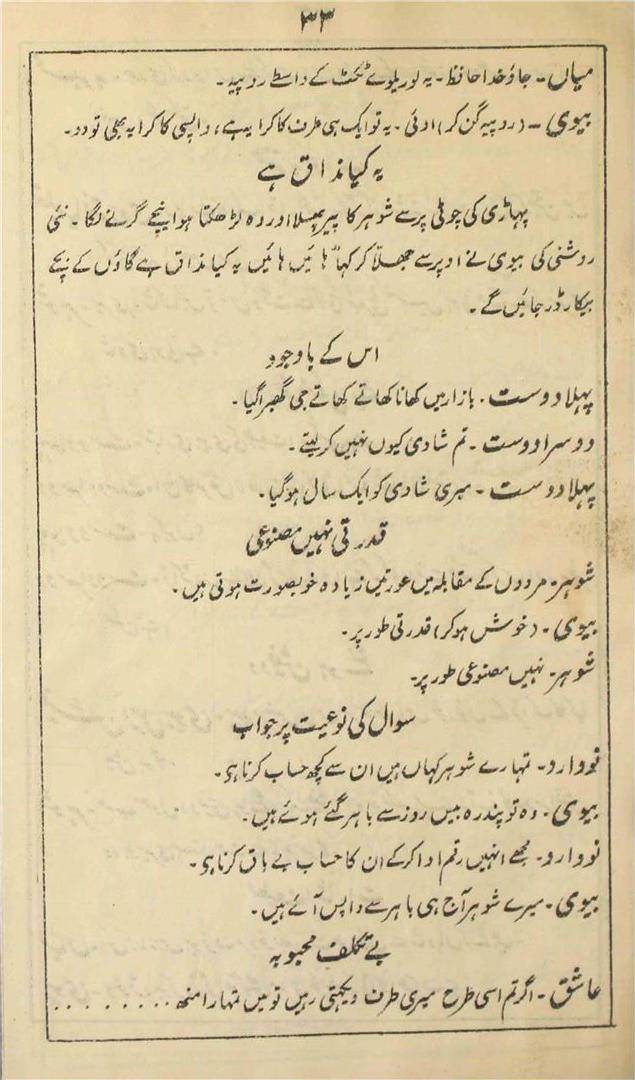 ۳۳
میاں۔ جاؤ خدا حافظ۔ یہ لو ریلوے ٹکٹ کے واسطے روپیہ۔
بیوی۔ (روپیہ گن کر) اوئی۔ یہ تو ایک ہی طرف کا کرایہ ہے، واپسی کا کرایہ بھی تو دو۔
یہ کیا مذاق ہے
پہاڑی کی چوٹی پر سے شوہر کا پیر پھسلا اور وہ لڑھکتا ہوا نیچے گرنے لگا۔ نئی
روشنی کی بیوی نے اوپر سے جھلّا کر کہا "ہائیں ہائیں یہ کیا مذاق ہے گاؤں کے نیچے
بیکار ڈر جائیں گے۔
اس کے باوجود
پہلا دوست۔ بازار میں کھانا کھاتے کھاتے جی گھبرا گیا۔
دوسرا دوست۔ تم شادی کیوں نہیں کر لیتے۔
پہلا دوست۔ میری شادی کو ایک سال ہو گیا۔
قدرتی نہیں مصنوعی
شوہر۔ مردوں کے مقابلہ میں عورتیں زیادہ خوبصورت ہوتی ہیں۔
بیوی۔ (خوش ہو کر) قدرتی طور پر۔
شوہر۔ نہیں مصنوعی طور پر۔
سوال کی نوعیت پر جواب
نووارد۔ تمہارے شوہر کہاں ہیں ان سے کچھ حساب کرنا ہے۔
بیوی۔ وہ تو پندرہ بیس روز سے باہر گئے ہوئے ہیں۔
نووارد۔ مجھے انہیں رقم ادا کر کے ان کا حساب بے باق کرنا ہے۔
بیوی۔ میرے شوہر آج ہی باہر سے واپس آئے ہیں۔
بے تکلف محبوبہ
عاشق۔ اگر تم اسی طرح میری طرف دیکھتی رہیں تو میں تمہارا منھ . . . . . . . . .